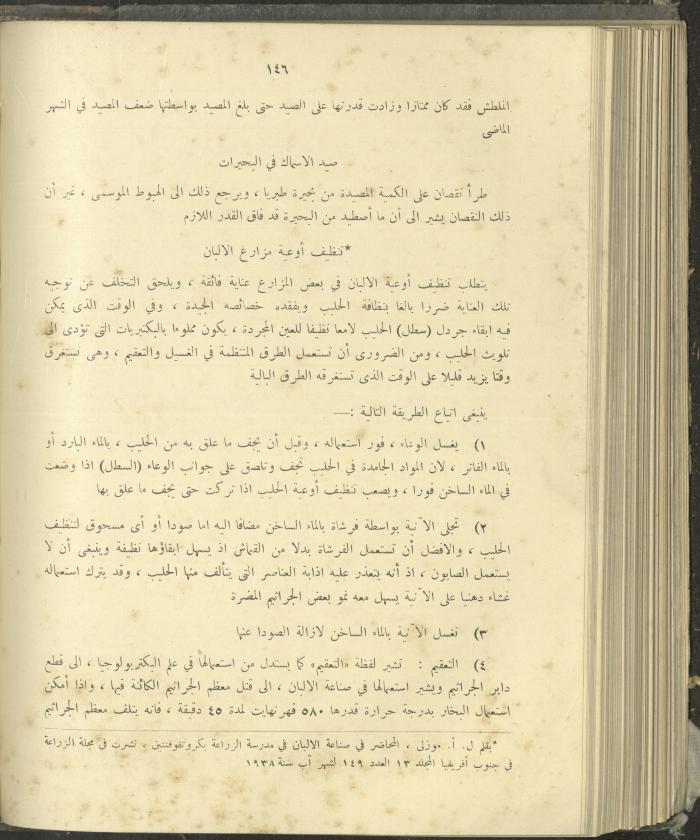 ١٤٦
الملطش فقد كان ممتازا وزادت قدرتها على الصيد حتى بلغ المصيد بواسطتها ضعف المصيد في الشهر
الماضى
صيد الاسماك في البحيرات
طرأ نقصان على الكمية المصيدة من بحيرة طبريا ، ويرجع ذلك الى الهبوط الموسمى ، غير أن
ذلك النقصان يشير الى أن ما أصطيد من البحيرة قد فاق القدر اللازم
*تنظيف أوعية مزارع الالبان
يتطلب تنظيف أوعية الالبان في بعض المزارع عناية فائقة ، ويلحق التخلف عن توجيه
تلك العناية ضررا بالغا بنظافة الحليب ويفقده خصائصه الجيدة ، وفي الوقت الذى يمكن
فيه ابقاء جردل (سطل) الحليب لامعا نظيفا للعين المجردة ، يكون مملوءا بالبكتيريات التى تؤدى الى
تلويث الحليب ، ومن الضرورى أن تستعمل الطرق المنتظمة في الغسيل والتعقيم ، وهى تستغرق
وقتا يزيد قليلا على الوقت الذى تستغرقه الطرق البالية
ينبغى اتباع الطريقة التالية :—
١) يغسل الوعاء ، فور استعماله ، وقبل أن يجف ما علق به من الحليب ، بالماء البارد أو
بالماء الفاتر ، لان المواد الجامدة في الحليب تجف وتلصق على جوانب الوعاء (السطل) اذا وضعت
في الماء الساخن فورا ، ويصعب تنظيف أوعية الحليب اذا تركت حتى يجف ما علق بها
٢) تجلى الآنية بواسطة فرشاة بالماء الساخن مضافا اليه اما صودا أو أى مسحوق لتنظيف
الحليب ، والافضل أن تستعمل الفرشاة بدلا من القماش اذ يسهل ابقاؤها نظيفة وينبغى أن لا
يستعمل الصابون ، اذ أنه يتعذر عليه اذابة العناصر التى يتألف منها الحليب ، وقد يترك استعماله
غشاء دهنيا على الآنية يسهل معه نمو بعض الجراثيم المضرة
٣) تغسل الآنية بالماء الساخن لازالة الصودا عنها
٤) التعقيم : تشير لفظة «التعقيم» كما يستدل من استعمالها في علم البكتريولوجيا ، الى قطع
دابر الجراثيم ويشير استعمالها في صناعة الالبان ، الى قتل معظم الجراثيم الكائنة فيها ، واذا أمكن
استعمال البخار بدرجة حرارة قدرها ٥٨٠ فهرنهايت لمدة ٤٥ دقيقة ، فانه يتلف معظم الجراثيم
*بقلم ل. أ. موزلى ، المحاضر في صناعة الالبان في مدرسة الزراعة بكروتفوفنتين ، نشرت في مجلة الزراعة
في جنوب أفريقيا المجلد ١٣ العدد ١٤٩ لشهر آب سنة ١٩٣٨